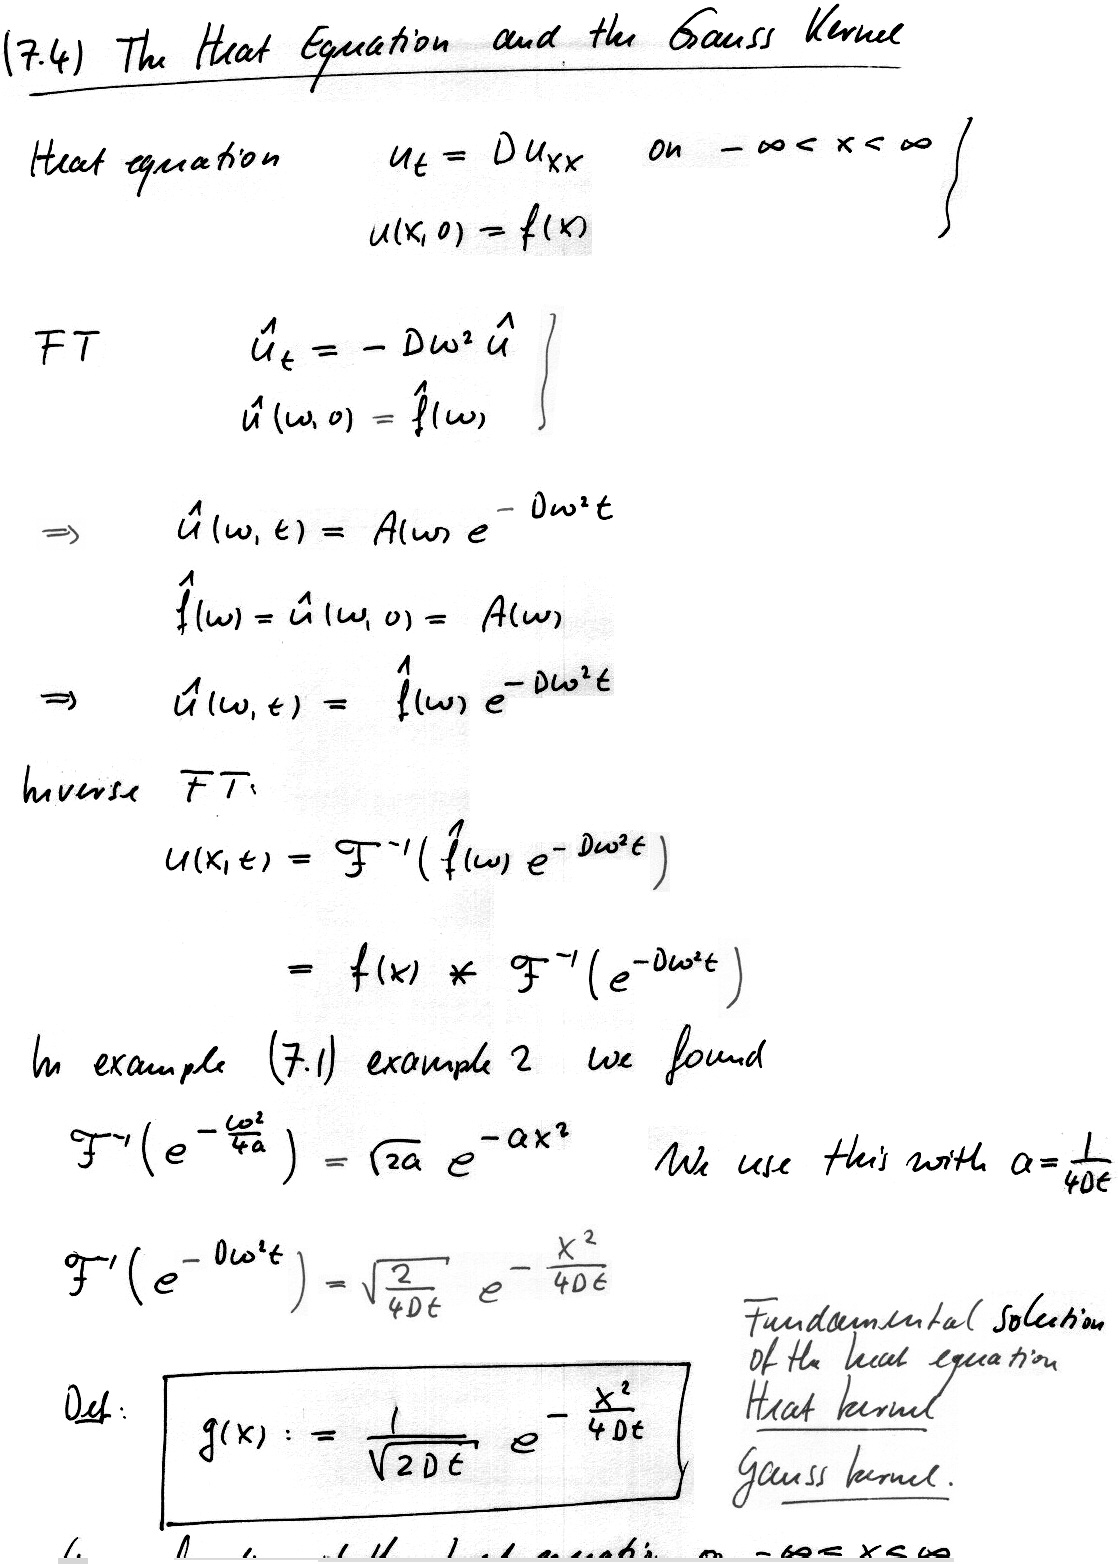 (7.4) The Heat Equation and the Gauss Kernel
Heat equation u_t = D u_xx on -∞ < x < ∞
u(x, 0) = f(x)
FT û_t = - Dω² û
û(ω, 0) = f̂(ω)
⇒ û(ω, t) = A(ω) e^{-Dω²t}
f̂(ω) = û(ω, 0) = A(ω)
⇒ û(ω, t) = f̂(ω) e^{-Dω²t}
Inverse FT:
u(x, t) = F⁻¹( f̂(ω) e^{-Dω²t} )
= f(x) * F⁻¹( e^{-Dω²t} )
In example (7.1) example 2 we found
F⁻¹( e^{-ω²/4a} ) = √2a e^{-ax²} We use this with a = 1/4Dt
F⁻¹( e^{-Dω²t} ) = √(2/4Dt) e^{-x²/4Dt}
Fundamental solution
of the heat equation
Heat kernel
Gauss kernel.
Def: g(x) := 1/√(2Dt) e^{-x²/4Dt}
-∞ < x < ∞